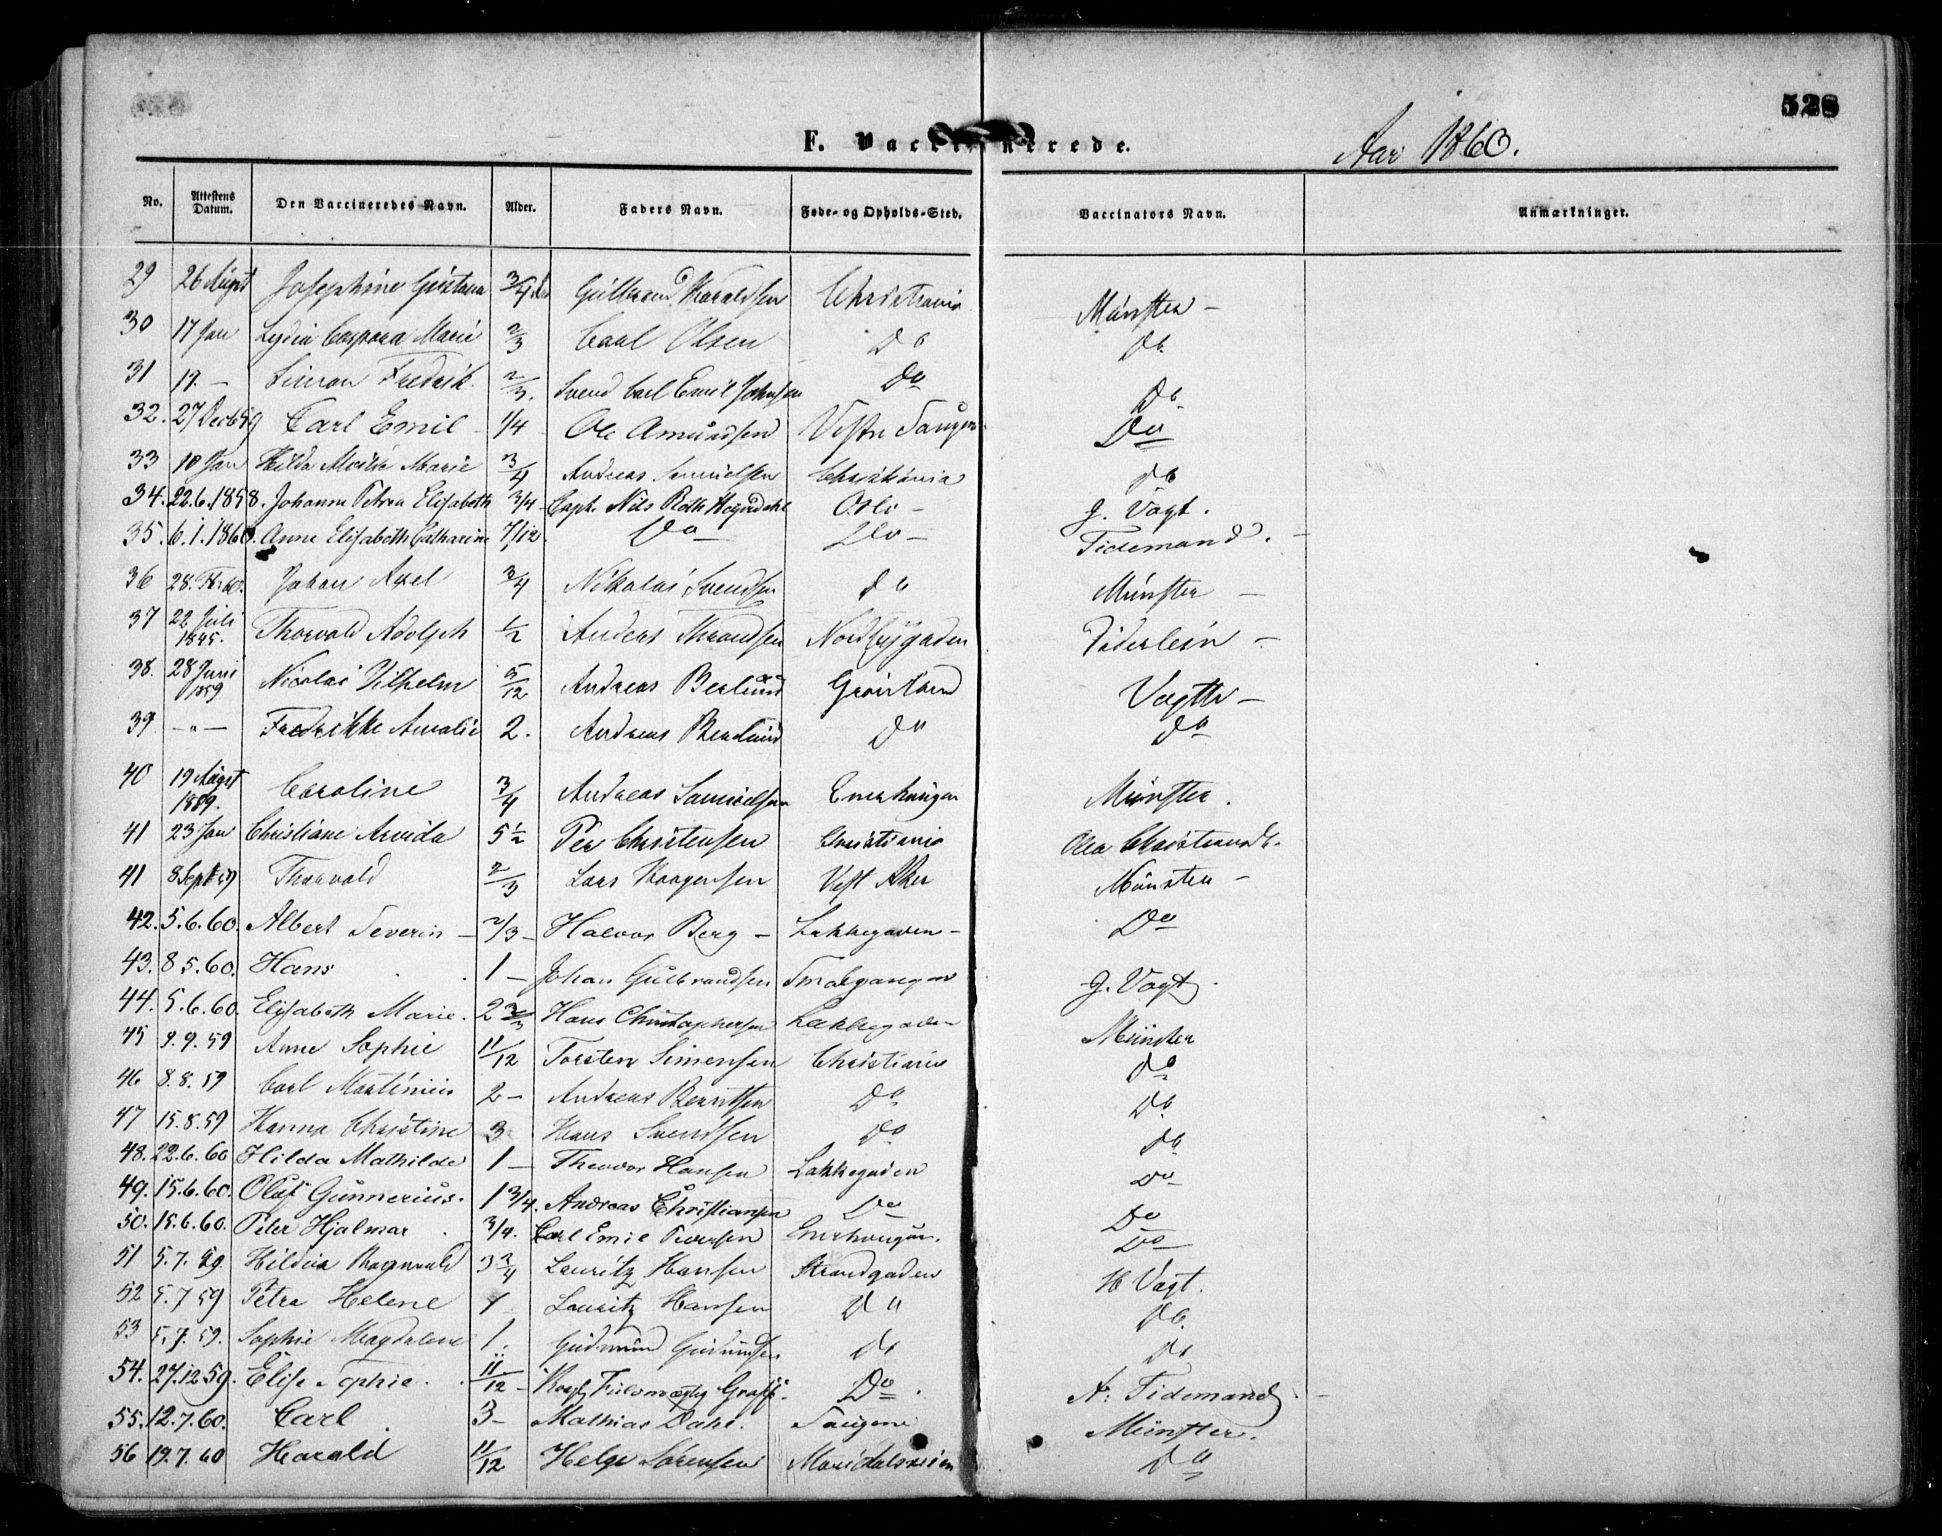 528
F. Vaccinerede.
Aar 1860.
No. Attestens Datum. Den Vaccineredes Navn. Alder. Faders Navn. Føde- og Opholds-Sted. Vaccinators Navn. Anmærkninger.
29 26 Augst Josephine Gustava 3/4 Haraldsen Christiania Münster –
30 17 Jan Lydia Caspara Marie 2/3 Carl Olsen Do Do
31 19. – Simon Fredrik 2/3. Svend Carl Emil Johnsen Do Do
32. 27 Decb 59 Carl Emil 1/4 Ole Amundsen Vestre Do
33 10 Jan Hilda Marie 3/4 Andreas Samuelsen Christiania Do
34. 22.6.1858. Johanna Petrea Elisabeth 3/4 Capt. Nils Roth Oslo – J. Vogt.
35. 6.1.1860. Anne Elisabeth Catharine 7/12. Do – Do – Tidemand. –
36 28. Johan Axel 3/4 Nikolai Svendsen Do Münster –
37 22 Juli 1845. Thorvald Adolph 1/2 Anders Nordbygaden –
38. 28 Juni 1859 Nicolai Vilhelm 5/12 Andreas Berlund Grønland –
39 – " – Fredrikke Amalie 2. Andreas Berlund Do Do
40 19 Augst 1859. Caroline 3/4 Andreas Samuelsen Enerhaugen Münster.
41 23 Jan Christiane 5 1/2 Per Christensen Christiania
41 8 Sept 59 Thorvald 2/3 Lars Haagensen Vest Aker Münster –
42. 5.6.60. Albert Severin – 2/3 – Halvor Berg – Lakkegaden – Do
43. 8 5.60. Hans 1 – Johan Gulbrandsen Smalgangen J. Vogt.
44. 5.6.60. Elisabeth Marie. 2 Hans Christophersen Lakkegaden Münster
45 9.9.59 Anne Sophie 11/12 Torsten Simensen Christiania Do
46 8.8.59 Carl Martinius 2 – Andreas Berntsen Do Do
47 15.8.59 Hanna Christine 3 Hans Svendsen Do Do
48. 22.6.60 Hilda Mathilde 1 – Theodor Hansen Lakkegaden Do
49. 15.6.60. Olaf Gunnerius. 1 3/4. Andreas Christiansen Do Do
50. 15.6.60. Peter Hjalmar 3/4. Carl Emil Enerhaugen. Do
51 5.7.59. Ragnvald 3 3/4 Lauritz Hansen Strandgaden H Vogt.
52 5.7 59 Petra Helene 1 Lauritz Hansen Do Do.
53 5.7.59. Sophie Magdalene 1. Gudmund Do Do
54. 27.12.59. Elise Sophie. 11/12 – Graff. Do. A. Tidemand. –
55. 12.7.60. Carl 3 – Mathias Dahl. Münster.
56 19.7.60 Harald 11/12 Helge Sørensen Maridalsveien Do